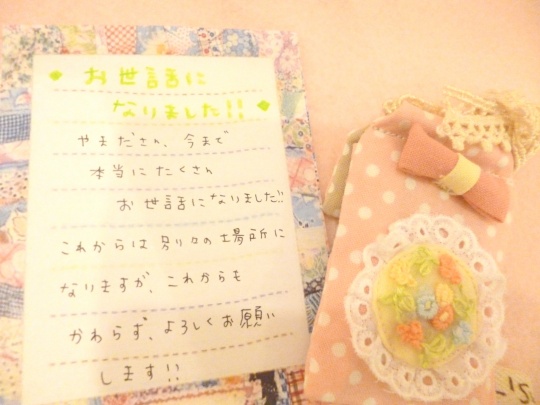 ◆お世話に
なりました!!◆
やまださん、今まで
本当にたくさん
お世話になりました!!
これからは別々の場所に
なりますが、これからも
かわらず、よろしくお願い
します!!